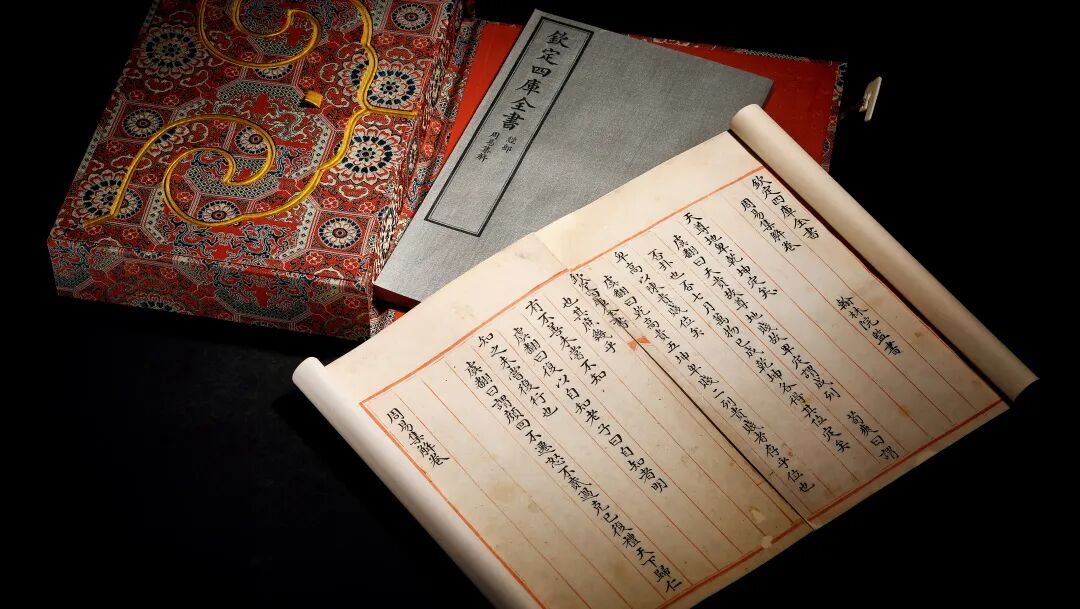 欽定四庫全書
經部
周易集解
欽定四庫全書
周易集解卷
翰林院監書
天尊地卑乾坤定矣
虞翻曰天貴故尊地賤故卑定謂成列 荀爽曰謂
否卦也否七月萬物已成乾坤各得其位定矣
卑高以陳貴賤位矣
虞翻曰乾高貴五坤卑賤二列貴賤者存乎位也
欽定四庫全書
也其庶幾乎
有不善未嘗不知
虞翻曰復以自知老子曰自知者明
知之未嘗復行也
虞翻曰謂顏回不遷怒不貳過克己復禮天下歸仁
周易集解卷